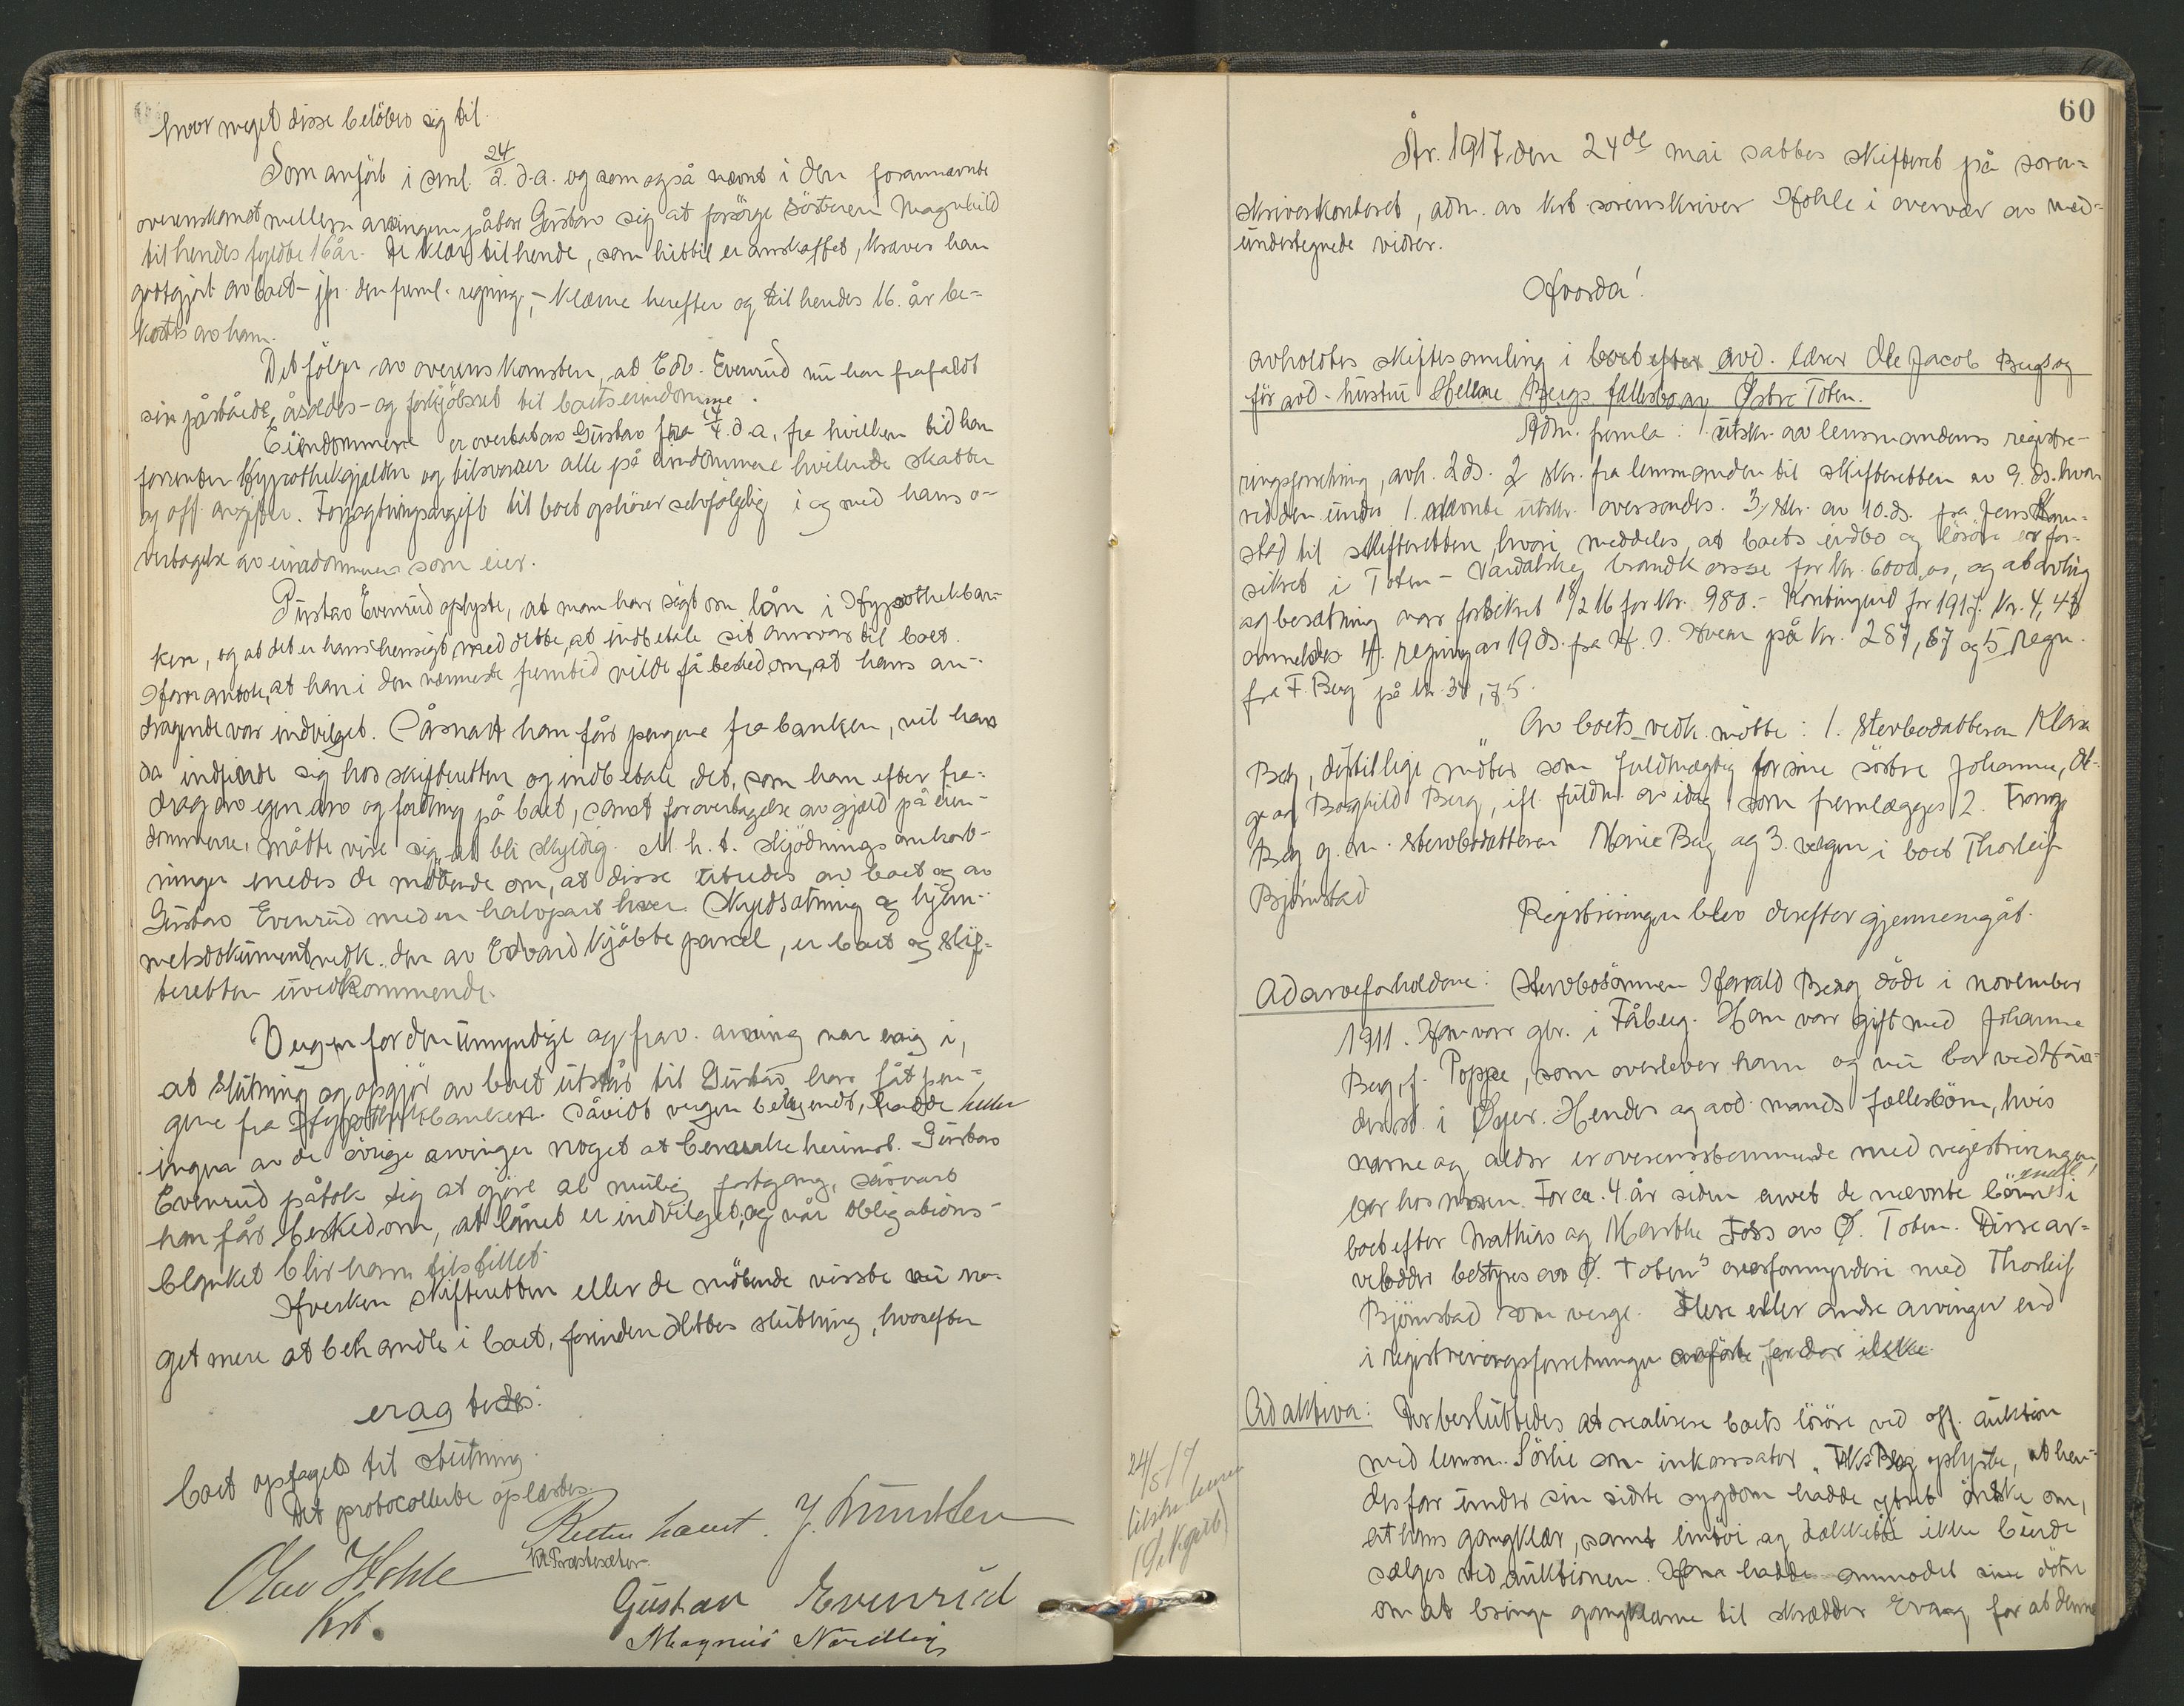 hvor meget disse belöber sig til.
Som anfört i saml. 24/2. d.a. og som også nævnt i den forannævnte
overenskomst mellem arvingene påtok Gustav sig at forsörge sösteren Magnhild
til hendes fyldte 16 år. De klær til hende, som hittil er anskaffet, kræves han
godtgjort av boet – jfr. den freml. regning, – klærne herefter og til hendes 16. år be-
kostes av ham.
Det fölger av overenskomsten, at Edv. Evenrud nu har frafaldt
sin påståede åsædes- og forkjöbsret til boets eiendomme.
Eiendommene er overtat av Gustav fra 14/4. d.a., fra hvilken tid han
forrenter hypothekgjælden og tilsvarer alle på eiendommene hvilende skatter
og off. avgifter. Forpagtningsavgift til boet ophörer selvfölgelig i og med hans o-
vertagelse av eiendommene som eier.
Gustav Evenrud oplyste, at man har sögt om lån i Hypothekban-
ken, og at det er hans hensigt med dette, at indbetale sit ansvar til boet.
Han antok, at han i den nærmeste fremtid vilde få besked om, at hans an-
dragende var indvilget. Såsnart han får pengene fra banken, vil han
da indfinde sig hos skifteretten og indbetale det, som han efter fra-
drag av egen arv og fordring på boet, samt for overtagelse av gjæld på eien-
dommene, måtte vise sig at bli skyldig. M.h.t. skjödnings omkost-
ninger enedes de mötende om, at disse utredes av boet og av
Gustav Evenrud med en halvpart hver. Skyldsætning og hjem-
melsdokument vedk. den av Edvard kjöbte parcel, er boet og skif-
teretten uvedkommende.
Vergen for den umyndige og frav. arving var enig i,
at slutning og opgjör av boet utstår til Gustav har fåt pen-
gene fra Hypothekbanken. Såvidt vergen bekjendt, hadde heller
ingen av de övrige arvinger noget at bemerke herimot. Gustav
Evenrud påtok sig at gjöre al mulig fortgang, såsnart
han får besked om, at lånet er indvilget, og når obligations-
blanket blir ham tilstillet.
Hverken skifteretten eller de mötende visste nu no-
get mere at behandle i boet, forinden dettes slutning, hvorefter
eragtedes:
boet optaget til slutning.
Det protocollerte oplæstes.
Retten hævet. J. Lundsten
Olav Hohle
Kst.
Gustav Evenrud
Magnus Nordlien
60
År 1917, den 24de mai sattes skifteret på soren-
skriverkontoret, adm. av kst. sorenskriver Hohle i overvær av med-
undertegnede vidner.
Hvorda!
avholdtes skiftesamling i boet efter avd. lærer Ole Jacob Berg og
för avd. hustru Hellene Bergs fællesbo av Østre Toten.
Adm. fremla: 1. utskr. av lensmandens registre-
ringsforretning, avh. 2 ds. 2 skr. fra lensmanden til skifteretten av 9. ds. hvor
ved den under 1. nævnte utskr. oversendes. 3, skr. av 10. ds. fra Jens
stad til skifteretten, hvori meddeles, at boets indbo og lösöre er for-
sikret i Toten – Vardalske brandkasse for kr. 6000,00, og at avling
og besætning var forsikret 18/2 16 for kr. 980.– Kontingent for 1917. kr. 4,48
anmeldes 4. regning av 19 ds. fra H. J. Hveem på kr. 287,67 og 5 regn.
fra F. Berg på kr. 38,75.
Av boets vedk. mötte: 1. stervbodatteren Klara
Berg, dertillige mötes som fuldmægtig for sine söstre Johanne, Ol-
ga og Borghild Berg, ifl. fuldm. av idag som fremlægges 2. Trond
Berg g.m. stervbodatteren Marie Berg og 3. vergen i boet Thorleif
Björnstad
Registreringen blev derefter gjennemgåt.
Ad arveforholdene: Stervbosönnen Harald Berg döde i november
1911. Han var gbr. i Fåberg. Han var gift med Johanne
Berg, f. Poppe, som overlever ham og nu bor ved Hun-
der st. i Øyer. Hendes og avd. mands fællesbörn, hvis
navne og alder er overensstemmende med registreringen,
bor hos moren. For ca. 4 år siden arvet de nævnte börn endel i
boet efter Mathias og Marthe Foss av Ø. Toten. Disse ar-
vebeder bestyres av Ø. Totens overformynderi med Thorleif
Björnstad som verge. Flere eller andre arvinger end
i registreringsforretningen anförte, er der ikke.
Ad aktiva: Der besluttedes at realisere boets lösöre ved off. auktion
med lensm. Sörlie som inkassator. Frk. Berg oplyste, at hen-
des far under sin sidste sygdom hadde ytret önske om,
at hans gangklær, samt lintöi og dækketöi ikke burde
sælges ved auktionen. Han hadde anmodet sine dötre
om at bringe gangklærne til skrædder Evang for at denne
24/5 17